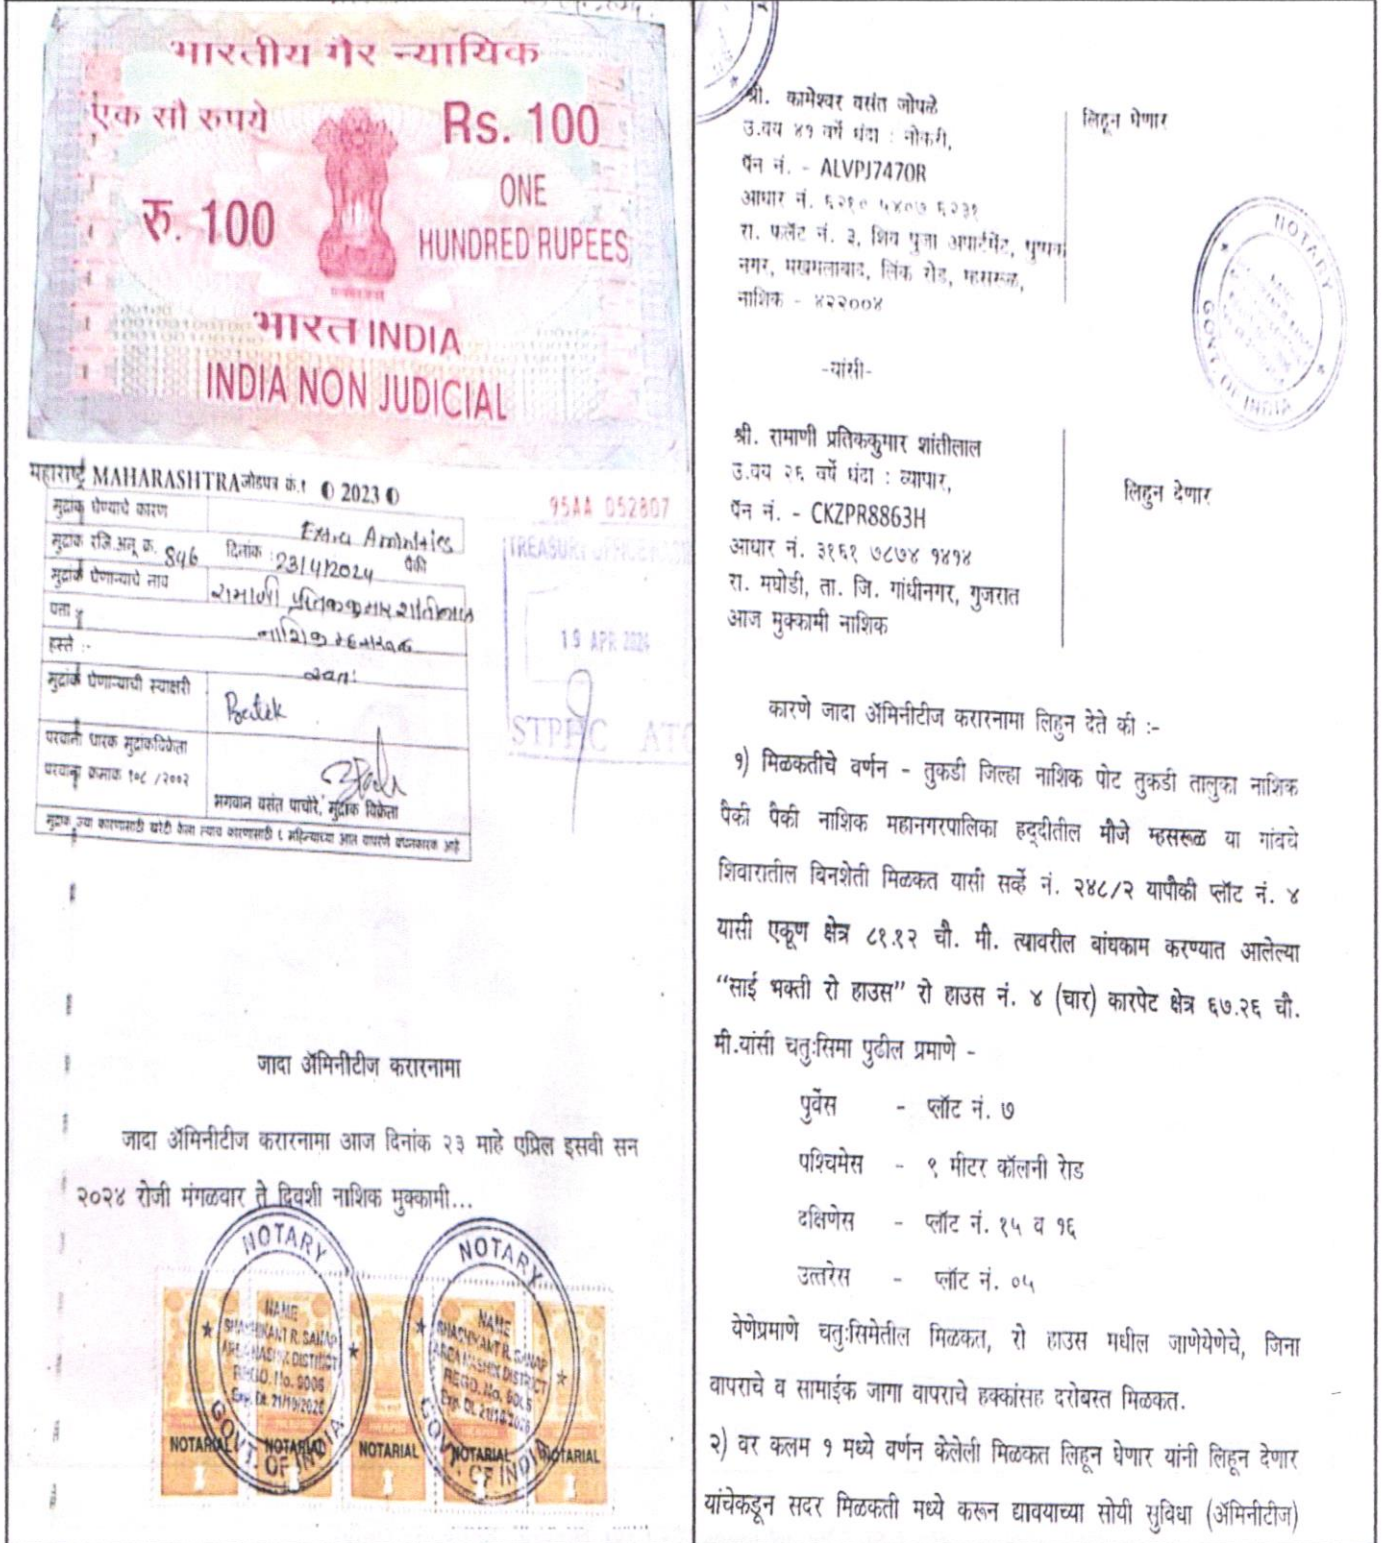 भारतीय गैर न्यायिक
एक सौ रुपये
Rs. 100
रु. 100
ONE
HUNDRED RUPEES
भारत INDIA
INDIA NON JUDICIAL
महाराष्ट्र MAHARASHTRA जोडपत्र कं.१ 2023
95AA 052807
मुद्रांक घेण्याचे कारण
मुद्रांक रजि.अनू क्र. 846 दिनांक : 23/4/2024 पैकी
मुद्रांक घेणाऱ्याचे नाव रामाणी प्रतिककुमार शांतीलाल
पत्ता
हस्ते :-
मुद्रांक घेणाऱ्याची स्वाक्षरी
परवाना धारक मुद्रांकविक्रेता
परवाना क्रमांक १०८ /२००२
भगवान वसंत पाचोरे, मुद्रांक विक्रेता
19 APR 2024
जादा ॲमिनीटीज करारनामा
जादा ॲमिनीटीज करारनामा आज दिनांक २३ माहे एप्रिल इसवी सन
२०२४ रोजी मंगळवार ते दिवशी नाशिक मुक्कामी...
NOTARY
NAME
SHASHIKANT R. SANAP
AREA NASHIK DISTRICT
REGD. No. 9006
GOVT. OF INDIA
NOTARY
NAME
SHASHIKANT R. SANAP
AREA NASHIK DISTRICT
GOVT. OF INDIA
NOTARIAL NOTARIAL NOTARIAL NOTARIAL NOTARIAL
श्री. कामेश्वर वसंत जोपळे
लिहून घेणार
उ.वय ४१ वर्षे धंदा : नोकरी,
पॅन नं. - ALVPJ7470R
आधार नं. ६२१० ५४०७ ६२३१
रा. फ्लॅट नं. ३, शिव पुजा अपार्टमेंट, पुष्पक
नगर, मखमलाबाद, लिंक रोड, म्हसरूळ,
नाशिक - ४२२००४
NOTARY
GOVT. OF INDIA
-यांसी-
श्री. रामाणी प्रतिककुमार शांतीलाल
उ.वय २६ वर्षे धंदा : व्यापार,
लिहुन देणार
पॅन नं. - CKZPR8863H
आधार नं. ३१६१ ७८७४ १४१४
रा. मघोडी, ता. जि. गांधीनगर, गुजरात
आज मुक्कामी नाशिक
कारणे जादा ॲमिनीटीज करारनामा लिहुन देते की :-
१) मिळकतीचे वर्णन - तुकडी जिल्हा नाशिक पोट तुकडी तालुका नाशिक
पैकी पैकी नाशिक महानगरपालिका हद्दीतील मौजे म्हसरूळ या गांवचे
शिवारातील बिनशेती मिळकत यासी सर्व्हे नं. २४८/२ यापैकी प्लॉट नं. ४
यासी एकूण क्षेत्र ८१.१२ चौ. मी. त्यावरील बांधकाम करण्यात आलेल्या
“साई भक्ती रो हाउस” रो हाउस नं. ४ (चार) कारपेट क्षेत्र ६७.२६ चौ.
मी.यांसी चतुःसिमा पुढील प्रमाणे -
पुर्वेस - प्लॉट नं. ७
पश्चिमेस - ९ मीटर कॉलनी रोड
दक्षिणेस - प्लॉट नं. १५ व १६
उत्तरेस - प्लॉट नं. ०५
येणेप्रमाणे चतुःसिमेतील मिळकत, रो हाउस मधील जाणेयेणेचे, जिना
वापराचे व सामाईक जागा वापराचे हक्कांसह दरोबस्त मिळकत.
२) वर कलम १ मध्ये वर्णन केलेली मिळकत लिहून घेणार यांनी लिहून देणार
यांचेकडून सदर मिळकती मध्ये करून द्यावयाच्या सोयी सुविधा (ॲमिनीटीज)